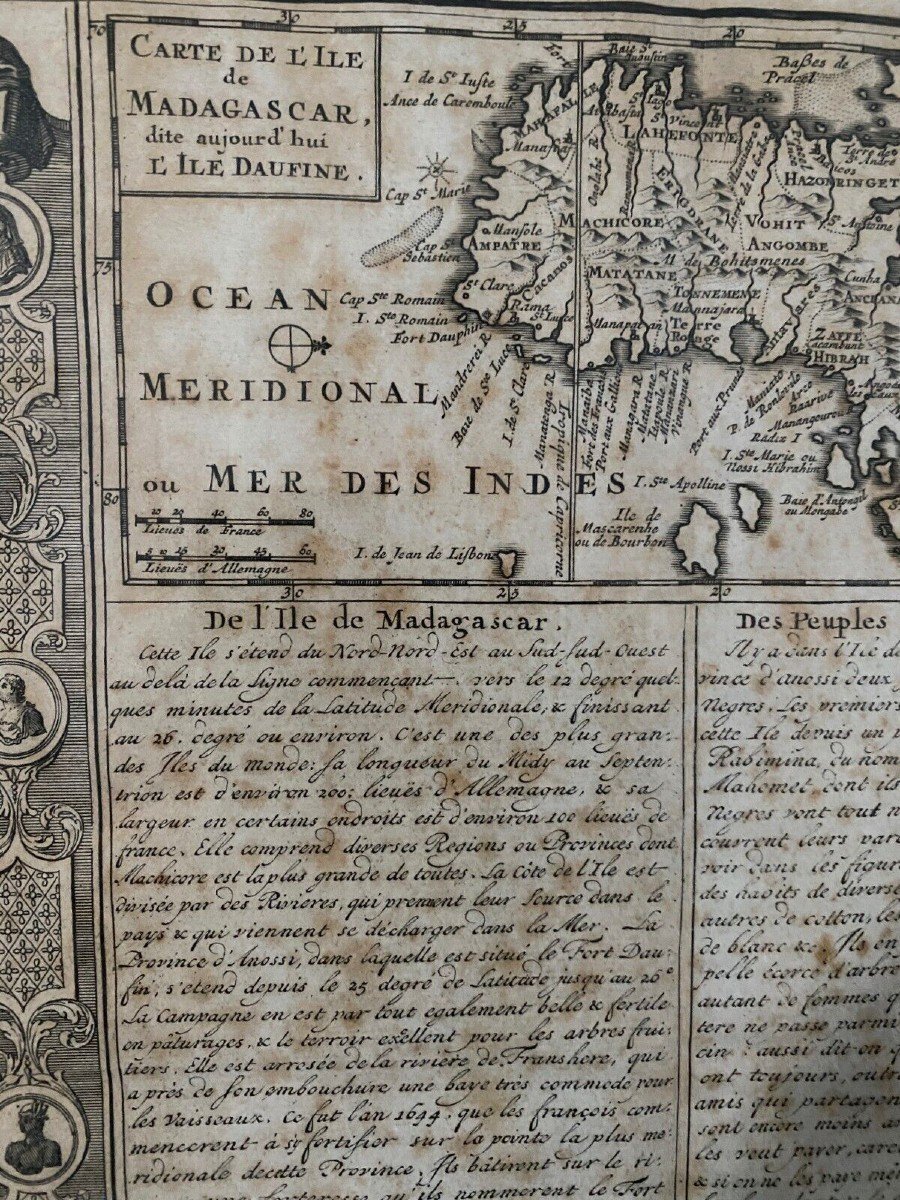 CARTE DE L'ILE
de
MADAGASCAR,
dite aujourd'hui
L'ÎLE DAUFINE.
30
25
20
70
75
80
I de St Iuste
Ance de Caromboule
Fort
Baie St
Augustin
Baßes de
Pracel
MAHAFALLE
LAHEFONTE
St Iago
St Vincent
Terre de
St André
HAZONRINGET
Cap Ste Marie
Cap St
Sebastien
Mansole
AMPATRE
MACHICORE
ERINGDRANE
VOHIT
ANGOMBE
St Antoine
M. de Bohitsmenes
MATATANE
St Clare
Cacanos
Rama
St Lucce
TONNEMEME
Mannajara
Terre
Rouge
Cunha
ANCIANA
ZAFFE
HIBRAH
Antavares
OCEAN
MERIDIONAL
ou MER DES INDES
Cap Ste Romain
I. Sto Romain
Fort Dauphin
Mandrerei R
Baie de Ste Luce
I. de St Clare
Manatenga R
Tropique de Capricorne
Fort des Francs
Port aux Gallions
Manangara R
Matatane
Port aux Prunes
Maniato
Manangourou
Radix I
I. Ste Marie ou
Nossi Hibrahim
I. Ste Apolline
Baie d'Antongil
ou Mongabe
Ile de
Mascarenhe
ou de Bourbon
I. de Jean de Lisbon
10 20 40 60 80
Lieuës de France
5 10 15 25 45 60
Lieuës d'Allemagne
30
25
20
De l'Ile de Madagascar.
Cette Ile s'étend du Nord-Nord-Est au Sud-sud-Ouest
au delà de la Ligne commençant vers le 12 degré quel-
ques minutes de la Latitude Meridionale, & finissant
au 26. degré ou environ. C'est une des plus gran-
des Iles du monde: sa longueur du Midy au Septen-
trion est d'environ 200: lieuës d'Allemagne, & sa
largeur en certains endroits est d'environ 100 lieuës de
france. Elle comprend diverses Regions ou Provinces dont
Machicore est la plus grande de toutes. La Côte de l'Ile est
divisée par des Rivieres, qui prennent leur Source dans le
pays & qui viennent se décharger dans la Mer. La
Province d'Anossi, dans laquelle est situé, le Fort Dau-
fin, s'etend depuis le 25 degré de Latitude jusqu'au 26°
La Campagne en est par tout egalement belle & fertile
en pâturages, & le terroir exellent pour les arbres frui-
tiers. Elle est arrosée de la riviére de Franshere, qui
a près de son embouchure une baye très commode pour
les Vaisseaux. Ce fut l'an 1644, que les françois com-
mencerent à s'y fortifier sur la pointe la plus me-
ridionale decette Province. Ils bâtirent sur le ri-
une forteresse qu'ils nommerent le Fort
Des Peuples
Il y a dans l'Ile de
vince d'anossi deux
Negres. Les premiers
cette Ile depuis un
Rabimina, du nom
Mahomet dont ils
Negres vont tout n
couvrent leurs
voir dans les figur
des habits de diverse
autres de cotton, les
de blanc &c. Ils en
pelle écorce d'arbre
autant de femmes q
tere ne passe parmi
cin: aussi dit on q
ont toujours, outre
amis qui partagen
sont encore moins a
les veut parer, care
& si on ne les pare